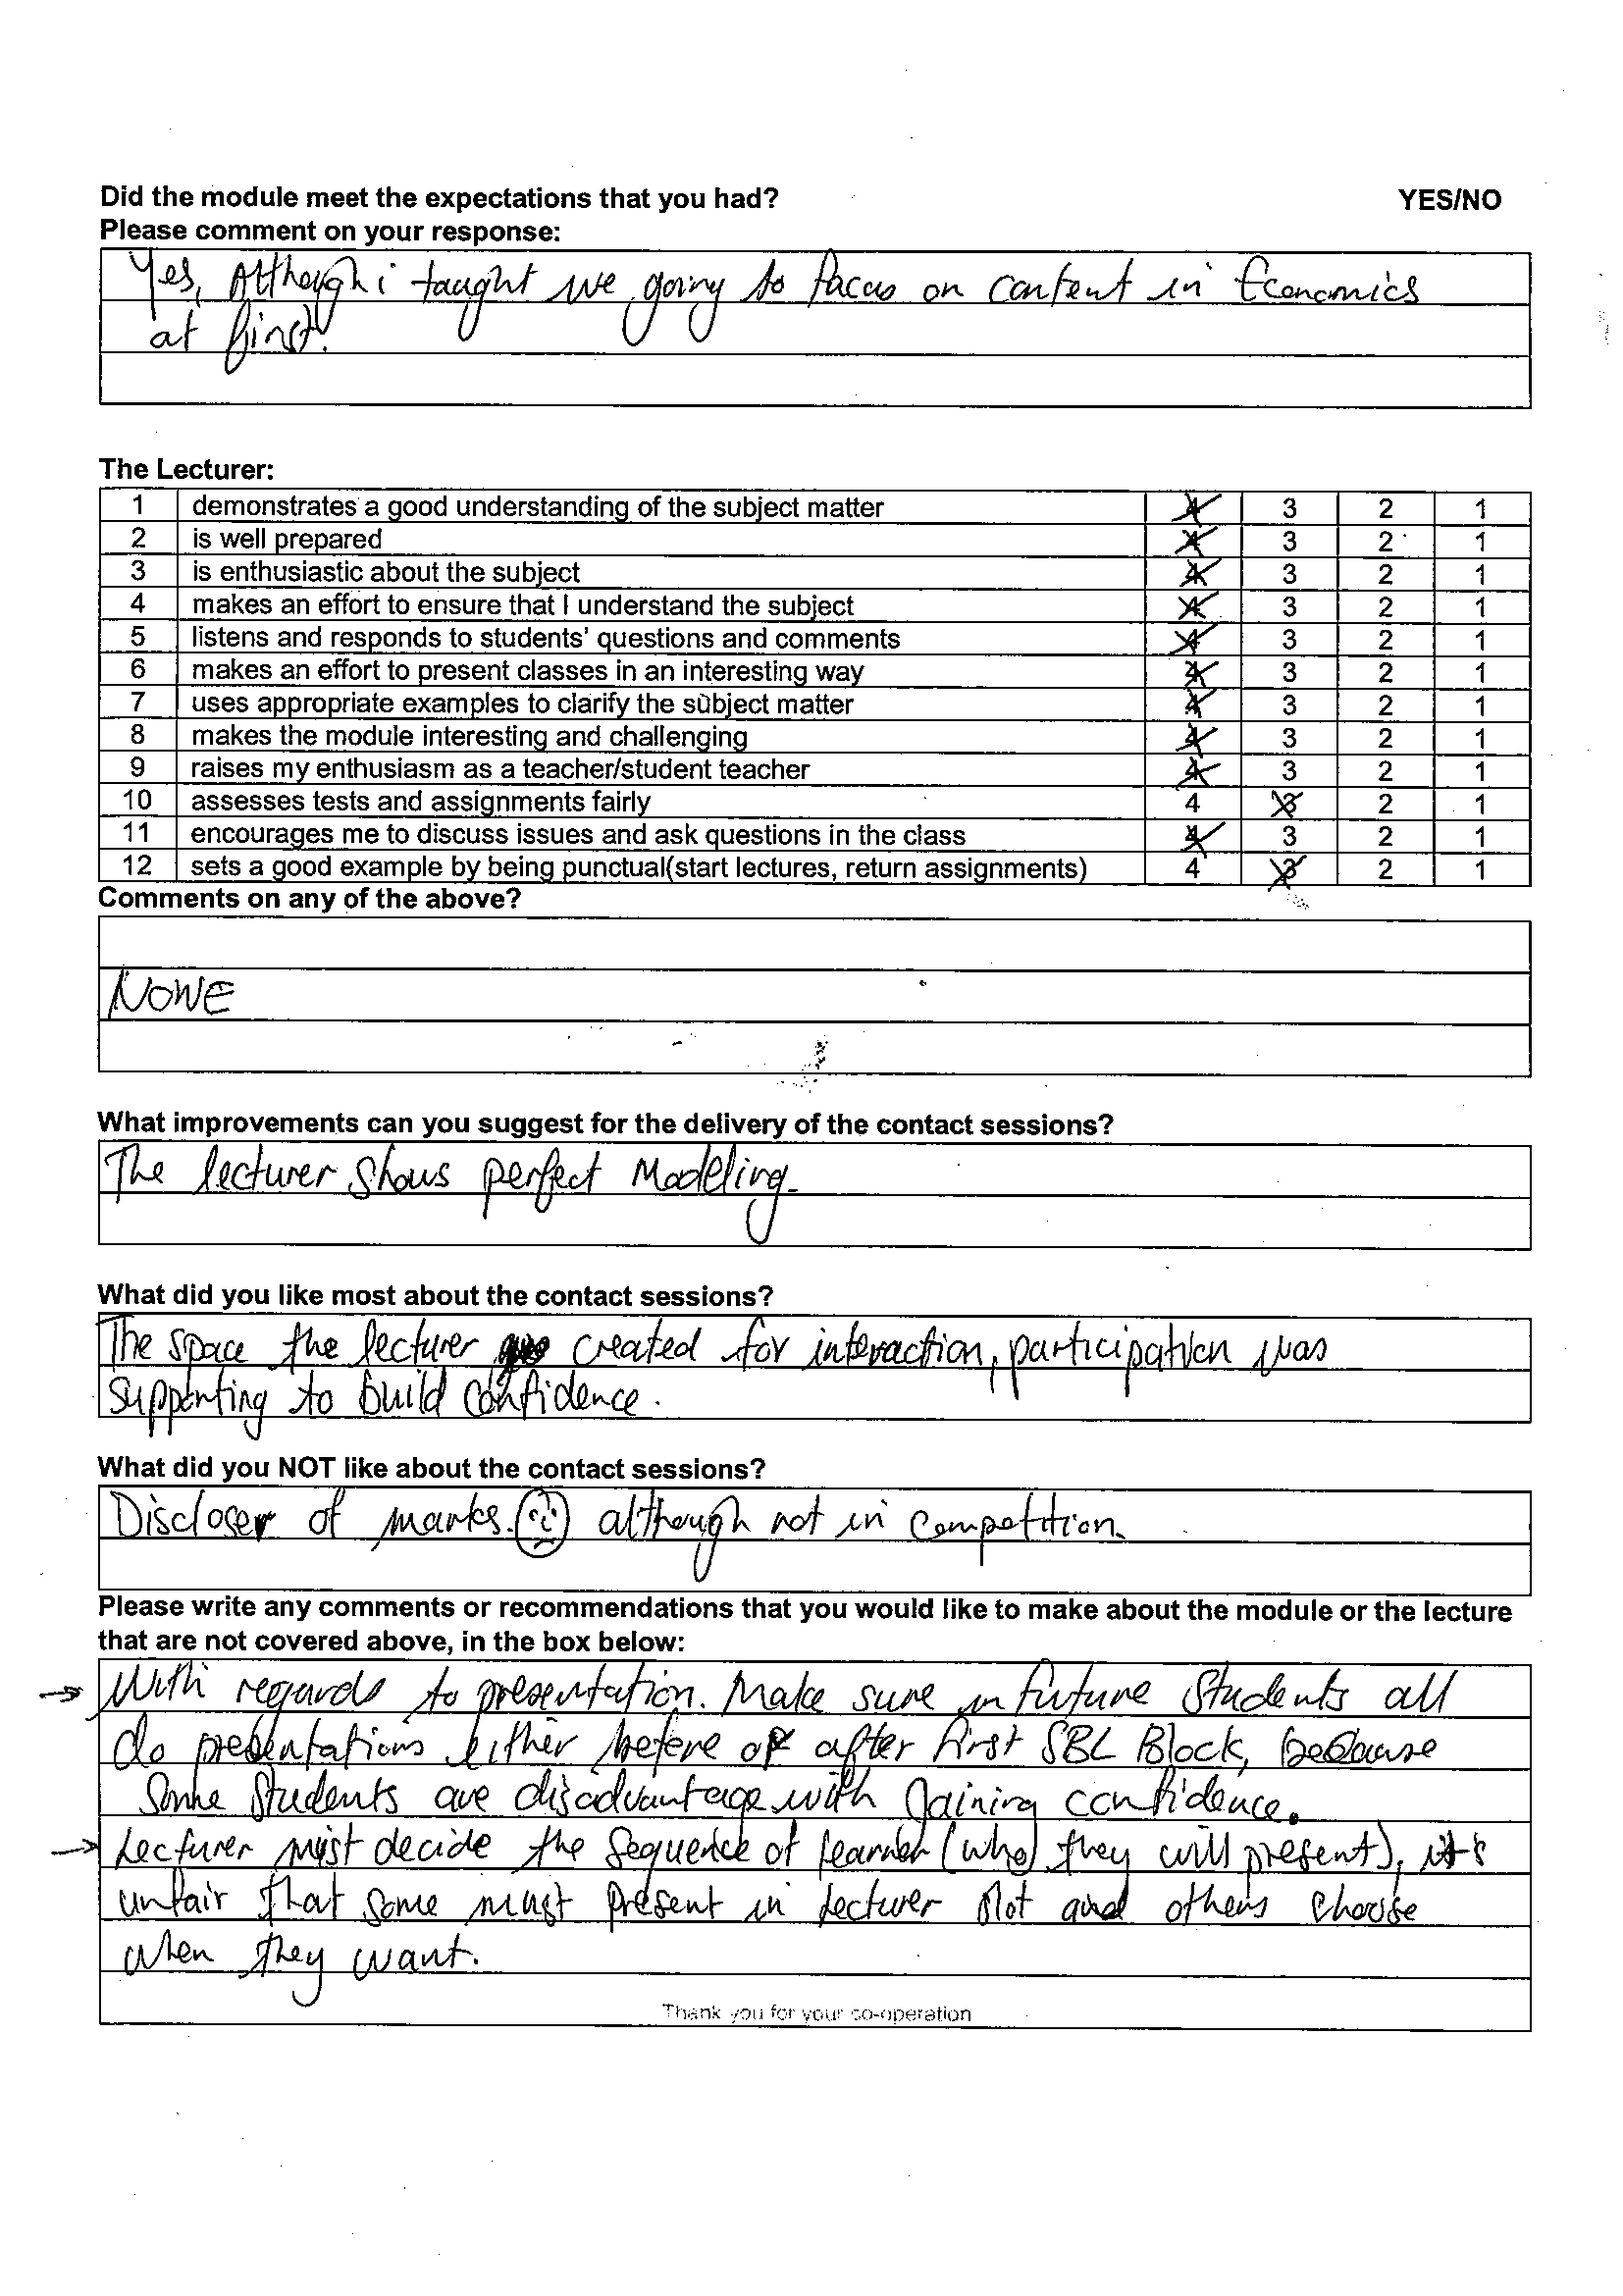 Did the module meet the expectations that you had? YES/NO
Please comment on your response:
Yes, Although i taught we going to focus on content in Economics
at first.
The Lecturer:
1 demonstrates a good understanding of the subject matter 4 3 2 1
2 is well prepared 4 3 2 1
3 is enthusiastic about the subject 4 3 2 1
4 makes an effort to ensure that I understand the subject 4 3 2 1
5 listens and responds to students' questions and comments 4 3 2 1
6 makes an effort to present classes in an interesting way 4 3 2 1
7 uses appropriate examples to clarify the subject matter 4 3 2 1
8 makes the module interesting and challenging 4 3 2 1
9 raises my enthusiasm as a teacher/student teacher 4 3 2 1
10 assesses tests and assignments fairly 4 3 2 1
11 encourages me to discuss issues and ask questions in the class 4 3 2 1
12 sets a good example by being punctual(start lectures, return assignments) 4 3 2 1
Comments on any of the above?
NONE
What improvements can you suggest for the delivery of the contact sessions?
The lecturer shows perfect Modeling.
What did you like most about the contact sessions?
The space the lecturer created for interaction, participation was
supporting to build confidence.
What did you NOT like about the contact sessions?
Discloser of marks. although not in competition.
Please write any comments or recommendations that you would like to make about the module or the lecture
that are not covered above, in the box below:
→ With regards to presentation. Make sure in future Students all
do presentations either before or after first SBL Block, because
Some Students are disadvantage with gaining confidence.
→ Lecturer must decide the sequence of learner (who) they will present), it's
unfair that some must present in lecturer slot and others choose
when they want.
Thank you for your co-operation